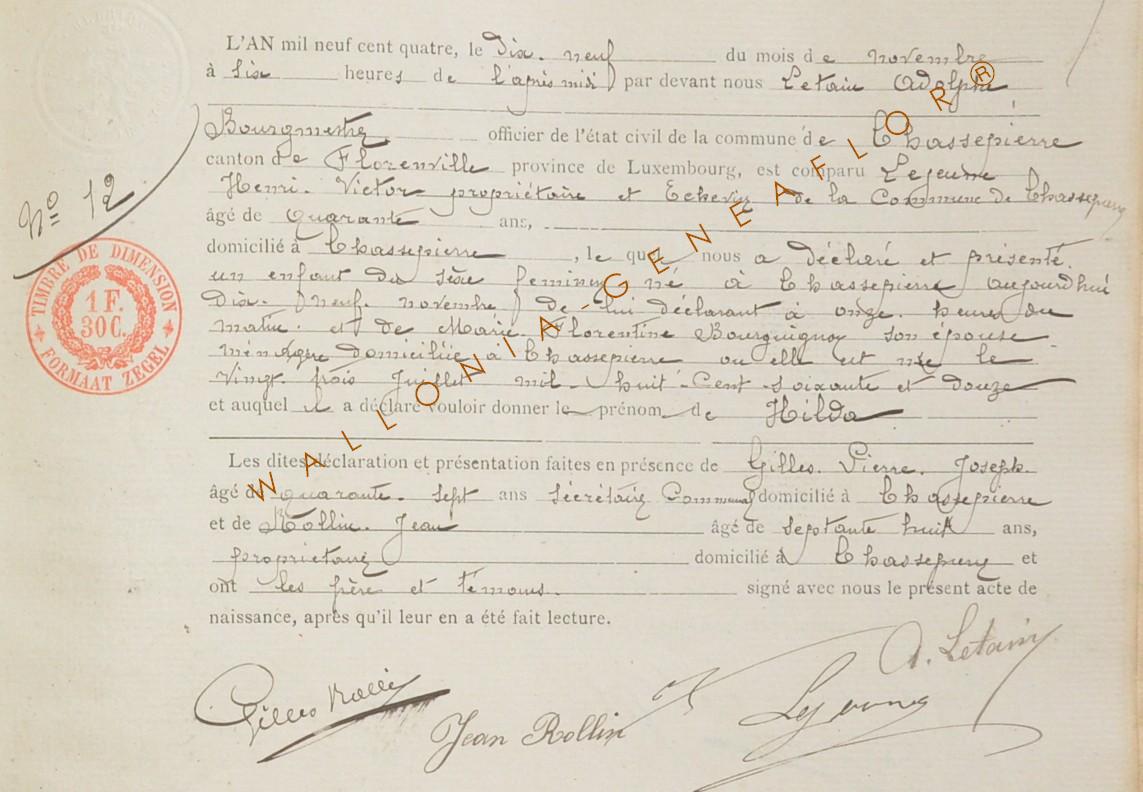 L'AN mil neuf cent quatre, le Dix. neuf du mois de novembre
à Six heures de l'après midi par devant nous Letain Adolphe
Bourgmestre officier de l'état civil de la commune de Chassepierre
canton de Florenville province de Luxembourg, est comparu Lejeune
Henri. Victor propriétaire et Echevin de la Commune de Chassepierre
âgé de Quarante ans,
domicilié à Chassepierre, le quel nous a déclaré et présenté
un enfant du sexe feminin né à Chassepierre aujourd'hui
Dix. neuf. novembre de lui déclarant à onze. heures du
matin. et de Marie. Florentine Bourguignon son épouse
ménagère domiciliée à Chassepierre ou elle est née le
Vingt. trois Juillet mil. huit-Cent-soixante et douze
et auquel il a déclaré vouloir donner le prénom de Hilda
Les dites déclaration et présentation faites en présence de Gilles. Pierre. Joseph.
âgé de quarante. sept ans Sécrétaire Communal domicilié à Chassepierre
et de Rollin. Jean âgé de septante huit ans,
propriétaire domicilié à Chassepierre et
ont les père et témoins. signé avec nous le présent acte de
naissance, après qu'il leur en a été fait lecture.
No 12
TIMBRE DE DIMENSION
1 F.
30 C.
FORMAAT ZEGEL
WALLONIA-GENEAFLOR®
A. Letain
Gilles
Lejeune
Jean Rollin